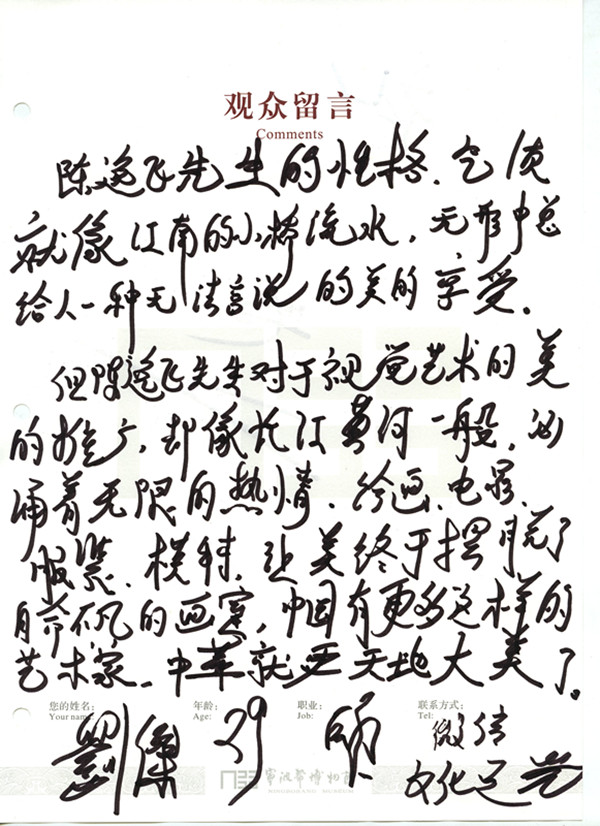 观众留言
Comments
陈逸飞先生的性格、气质
就像江南的小桥流水，无形中总
给人一种无法言说的美的享受。
但陈逸飞先生对于视觉艺术的美
的推广，却像长江黄河一般，汹
涌着无限的热情、绘画、电影、
服装、模特，让美终于摆脱了
的画，中国有更多这样的
艺术家，中华就无天地大美了。
您的姓名： 年龄： 职业： 联系方式：
Your name: Age: Job: Tel:
劉傑 39 微信
宁波帮博物馆
NINGBOBANG MUSEUM